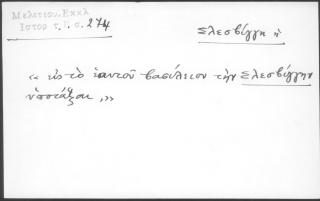 Μελετίου, Εκκλ
Ιστορ τ. ι. σ. 274
Σλεσβίγγη ἡ
« εἰς τὸ ἑαυτοῦ βασίλειον τὴν Σλεσβίγγην
ὑποτάξαι „»